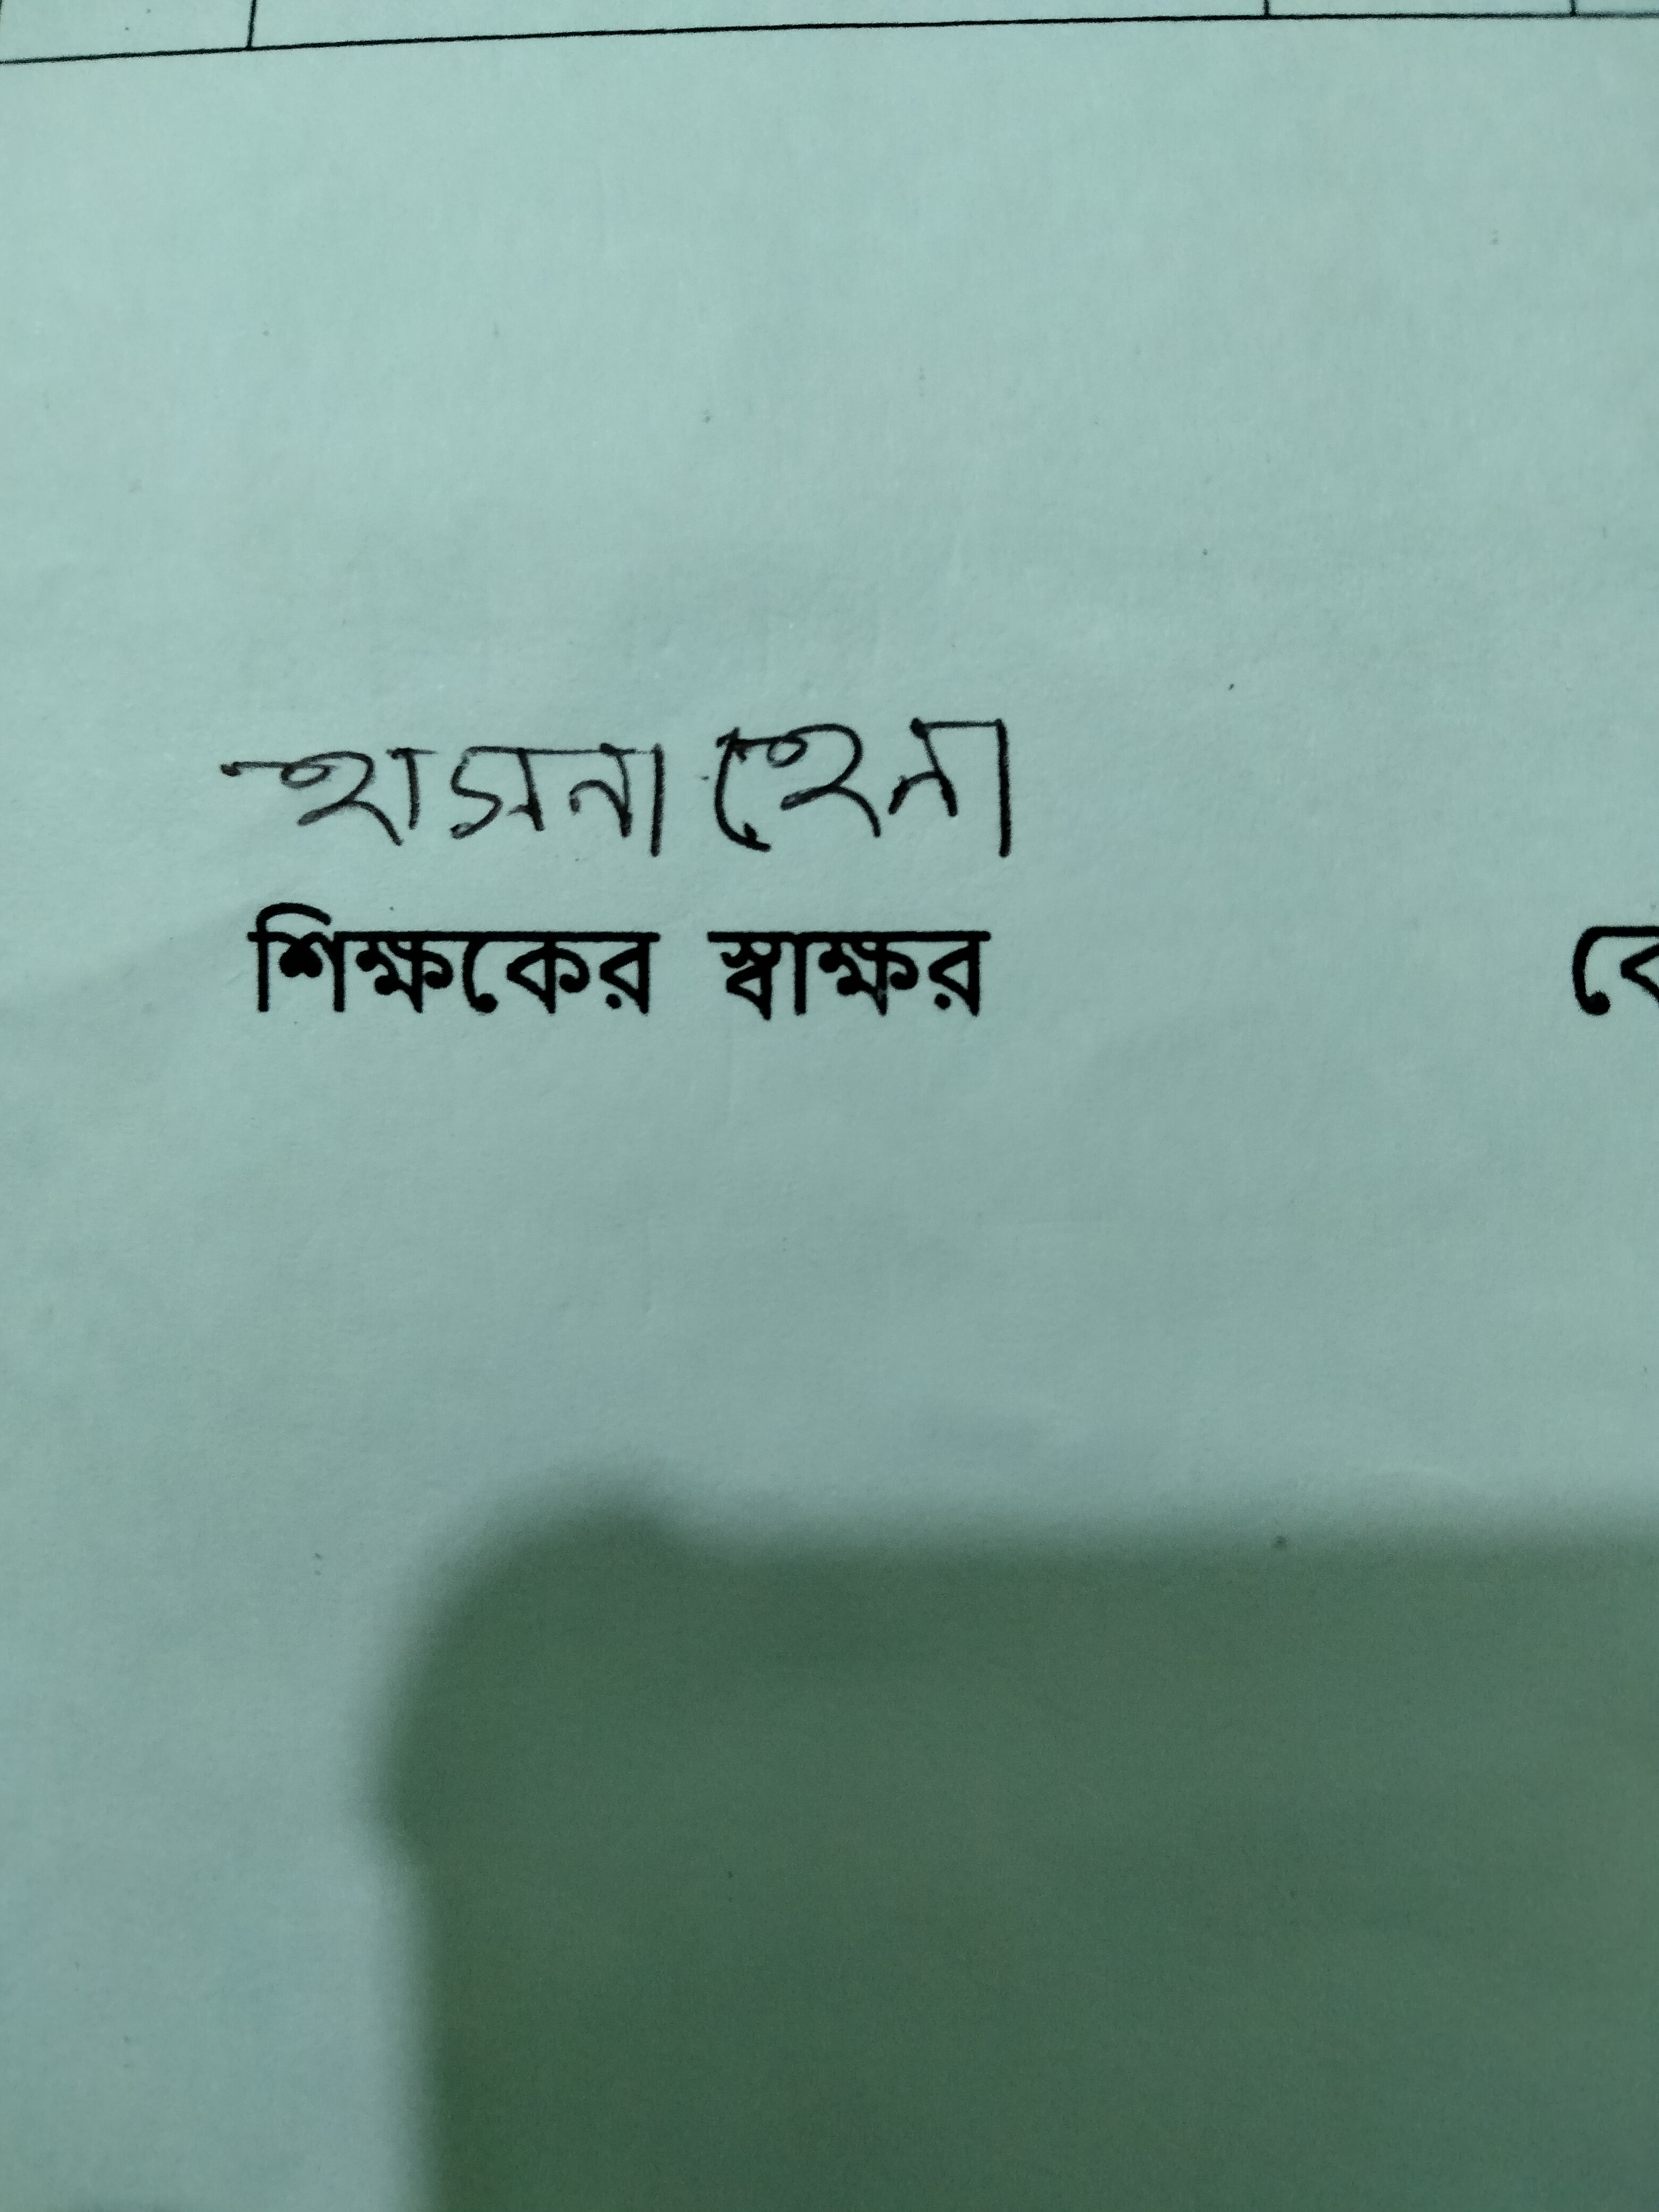 হাসনা হেনা
শিক্ষকের স্বাক্ষর